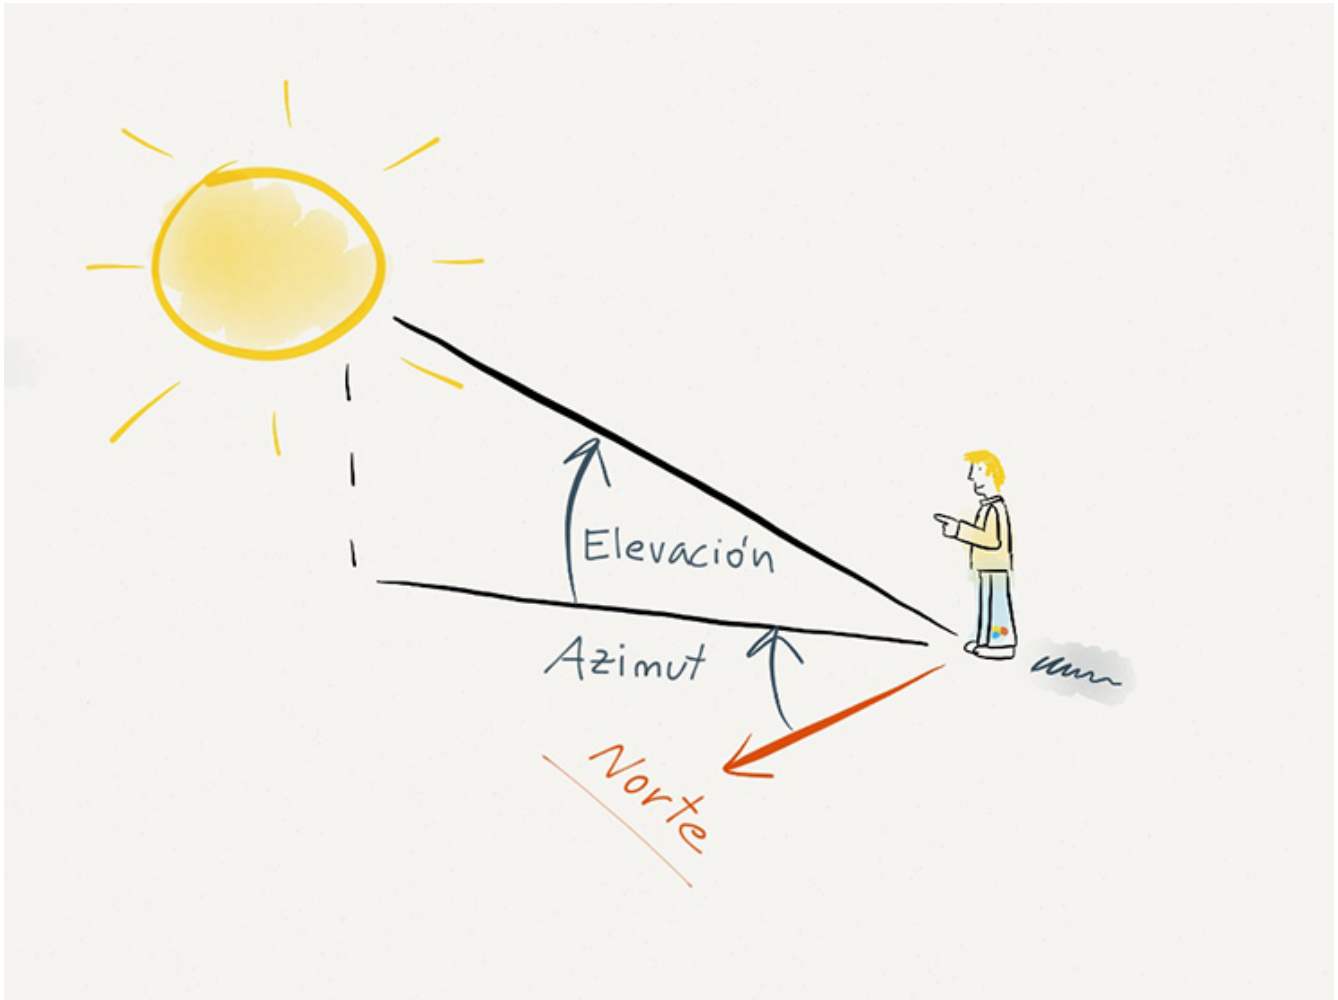 Elevación
Azimut
Norte